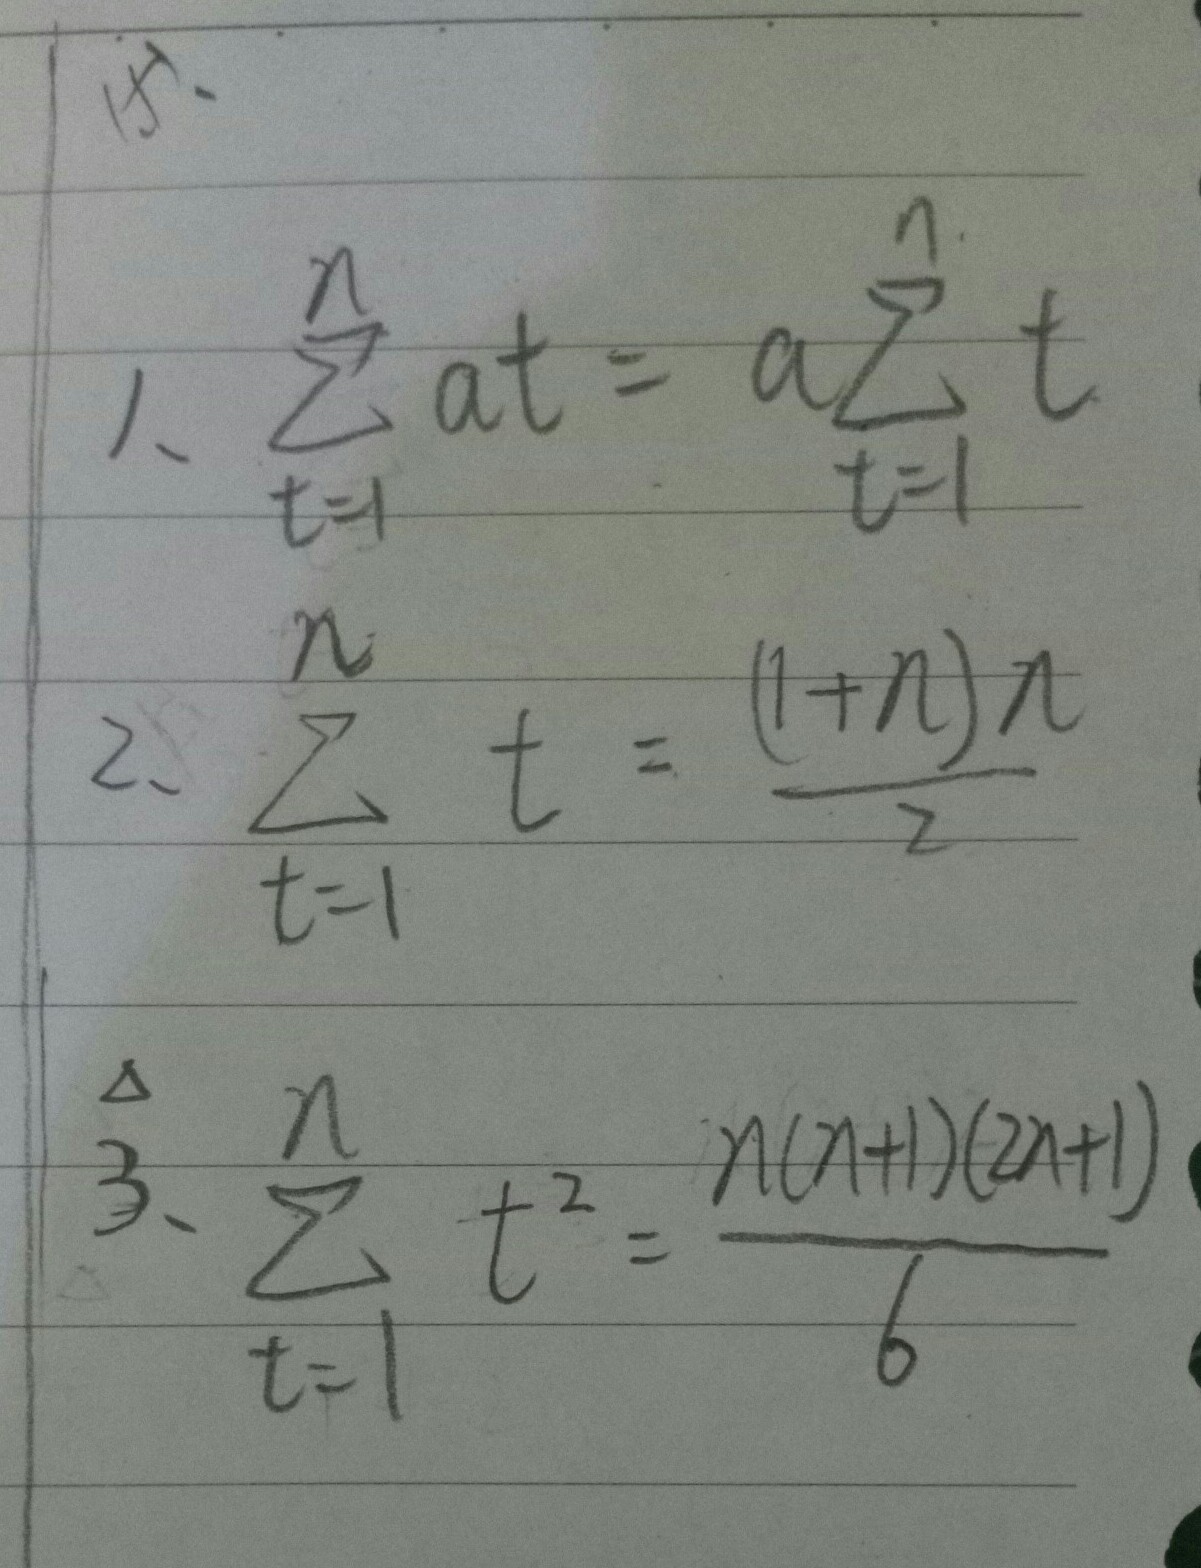 1、 \sum_{t=1}^{n} at = a \sum_{t=1}^{n} t
2、 \sum_{t=1}^{n} t = \frac{(1+n)n}{2}
△
3、 \sum_{t=1}^{n} t^2 = \frac{n(n+1)(2n+1)}{6}